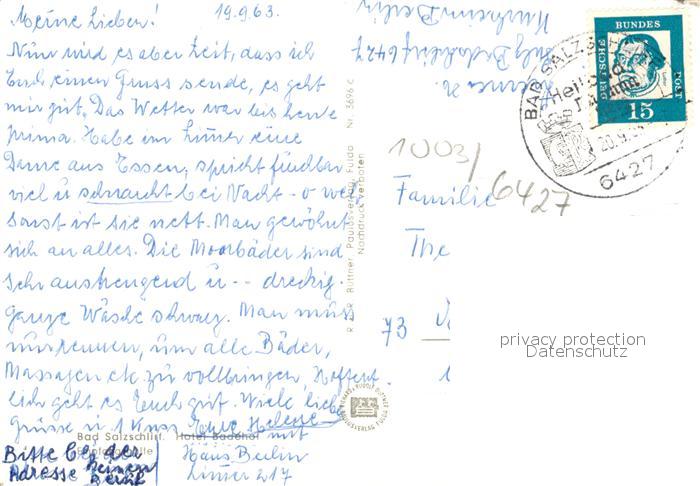 Meine Lieben! 19.9.63.
Nun wird es aber Zeit, dass ich
Euch einen Gruss sende, es geht
mir gut. Das Wetter war bis heute
prima. Habe im Zimmer eine
Dame aus Essen, spricht furchtbar
viel u schnarcht bei Nacht - o weh
sonst ist sie nett. Man gewöhnt
sich an alles. Die Moorbäder sind
sehr anstrengend u -- dreckig.
ganze Wäsche schwarz. Man muss
nur rennen, um alle Bäder,
Massagen etc zu vollbringen. Hoffent
lich geht es Euch gut. Viele liebe
Grüsse u 1 Kuss Eure Helene
Bad Salzschlirf. Hotel Badehof mit
Bitte bei der
Adresse meinen
Beruf
Haus Berlin
Zimmer 217
Kurheim Berlin
6427
R & R Büttner Paulusverlag Fulda Nr. 3696
Nachdruck verboten
BAD SALZS
20.9.
6427
DEUTSCHE BUNDES POST
15
1003/
6427
Familie
The
73
privacy protection
Datenschutz